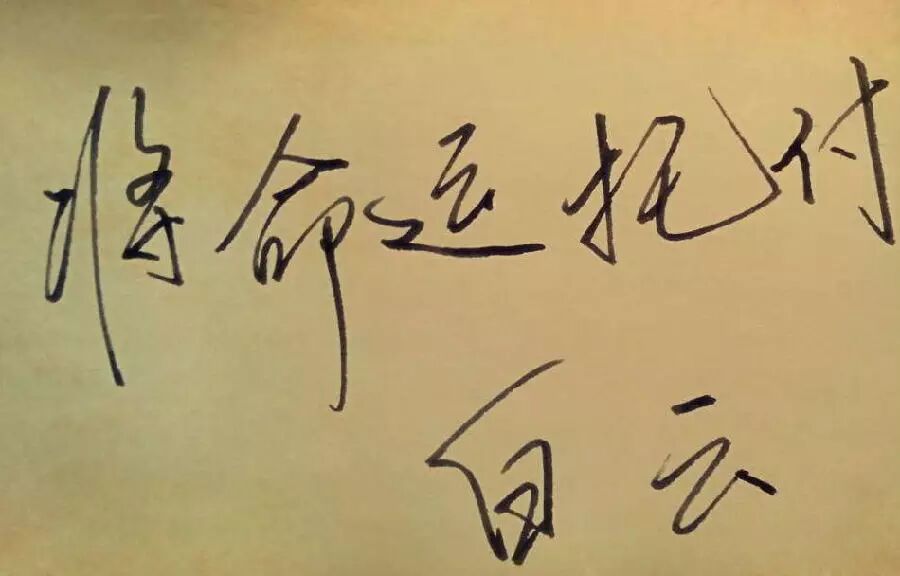 将命运托付
白云